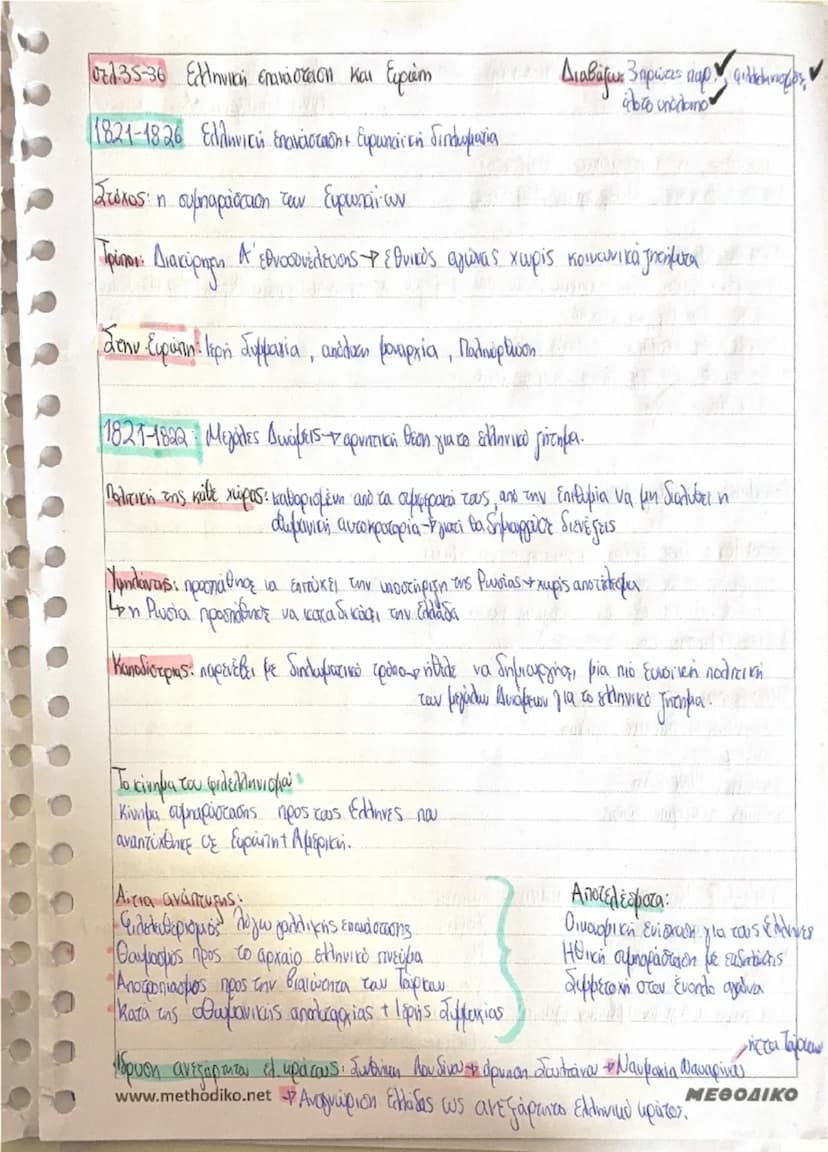 σελ.35-36 Ελληνική επανάσταση και Ευρώπη
Διαβάζω: 3 πρώτες παρ. ✓, φιλελληνισμός, ✓
όλο το υπόλοιπο ✓
1821-1826 Ελληνική επανάσταση + Ευρωπαϊκή διπλωματία
Στόχος: η συμπαράσταση των Ευρωπαίων
Τρόποι: Διακήρηξη Α' εθνοσυνέλευσης → εθνικός αγώνας χωρίς κοινωνικά ζητήματα
Στην Ευρώπη: Ιερή Συμμαχία, απόλυτη μοναρχία, Παλινόρθωση
1821-1822: Μεγάλες Δυνάμεις → αρνητική θέση για το ελληνικό ζήτημα.
Πολιτική της κάθε χώρας: καθορισμένη από τα συμφέροντά τους, από την επιθυμία να μη διαλυθεί η
οθωμανική αυτοκρατορία → γιατί θα δημιουργούσε διενέξεις
Υψηλάντης: προσπάθησε να επιτύχει την υποστήριξη της Ρωσίας → χωρίς αποτέλεσμα
↳ η Ρωσία προσπάθησε να καταδικάσει την Ελλάδα
Καποδίστριας: παρενέβει με διπλωματικό τρόπο → ήθελε να δημιουργήσει μία πιό ευνοϊκή πολιτική
των μεγάλων Δυνάμεων για το ελληνικό ζήτημα.
Το κίνημα του φιλελληνισμού
Κίνημα συμπαράστασης προς τους Έλληνες που
αναπτύχθηκε σε Ευρώπη + Αμερική.
Αίτια ανάπτυξης:
Φιλελευθερισμός λόγω γαλλικής επανάστασης
Θαυμασμός προς το αρχαίο ελληνικό πνεύμα
Αποτροπιασμός προς την βιαιότητα των Τούρκων
Κατά της οθωμανικής απολυταρχίας + Ιερής Συμμαχίας
Αποτελέσματα:
Οικονομική ενίσχυση για τους Έλληνες
Ηθική συμπαράσταση με εκδηλώσεις
Συμμετοχή στον ένοπλο αγώνα
Ίδρυση ανεξάρτητου ελ. κράτους: Συνθήκη Λονδίνου → άρνηση Σουλτάνου → Ναυμαχία Ναυαρίνου
ήττα Τούρκων
www.methodiko.net → Αναγνώριση Ελλάδας ως ανεξάρτητο ελληνικό κράτος.
ΜΕΘΟΔΙΚΟ